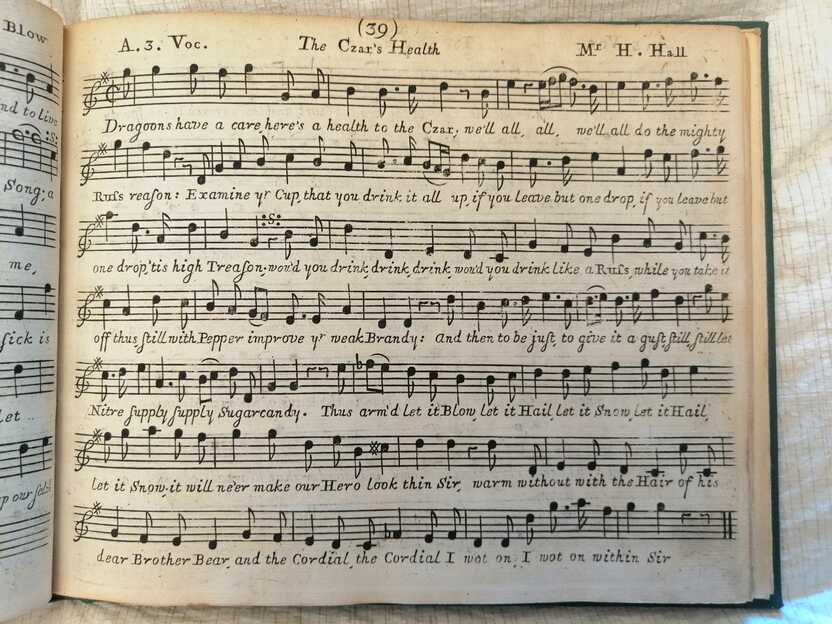 Blow
(39)
A. 3. Voc. The Czar's Health Mr H. Hall
nd to live
Dragoons have a care, here's a health to the Czar; we'll all, all, we'll all do the mighty
Song; a
Ruſs reaſon: Examine yr Cup, that you drink it all up, if you leave but one drop, if you leave but
:S:
me,
one drop, 'tis high Treaſon; wou'd you drink, drink, drink, wou'd you drink like a Ruſs, while you take it
ſick is
off thus, ſtill with Pepper improve yr weak Brandy: And then to be juſt, to give it a guſt, ſtill, ſtill let
let
Nitre ſupply, ſupply Sugarcandy. Thus arm'd let it Blow, let it Hail, let it Snow, let it Hail,
let it Snow, it will ne'er make our Hero look thin Sir, warm without with the Hair of his
up our
dear Brother Bear, and the Cordial, the Cordial I wot on, I wot on within Sir